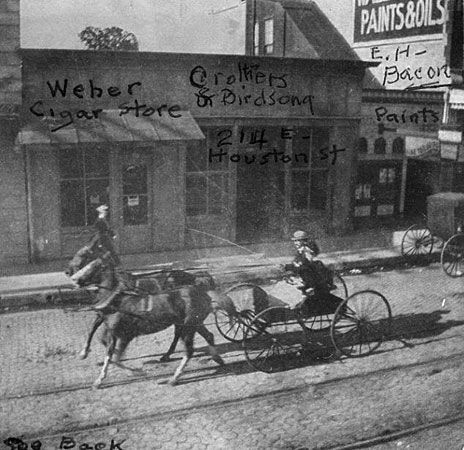 PAINTS & OILS
E.H-
Bacon
Paints
Weber
Cigar Store
Crothers
& Birdsong
214 E-
Houston St
Back